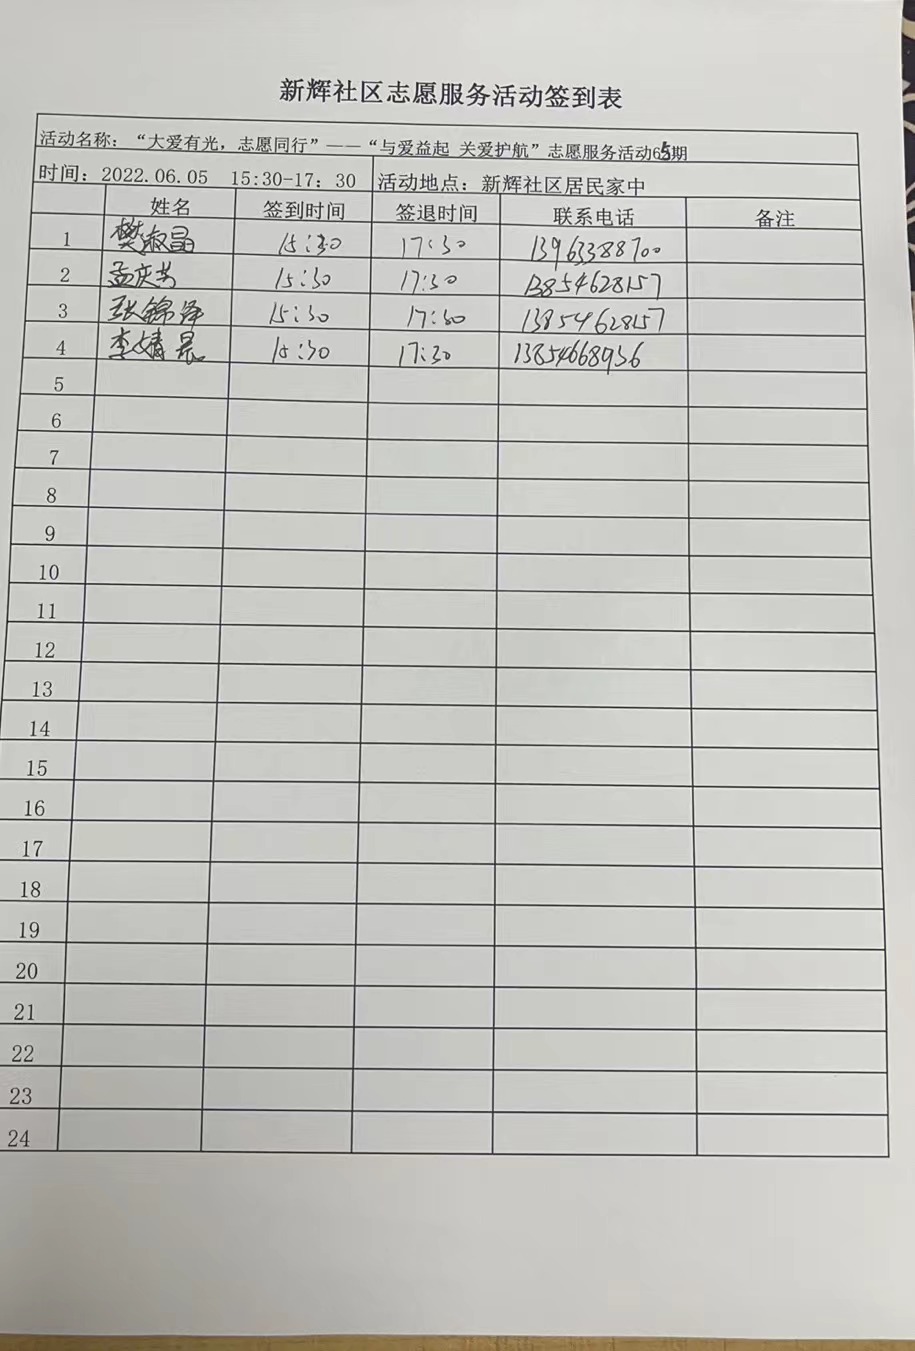 新辉社区志愿服务活动签到表
活动名称：“大爱有光，志愿同行”——“与爱益起 关爱护航”志愿服务活动65期
时间：2022.06.05 15:30-17：30 活动地点：新辉社区居民家中
姓名 签到时间 签退时间 联系电话 备注
1 樊淑晶 15:30 17:30 13963388700
2 孟庆芳 15:30 17:30 13854628157
3 张锦译 15:30 17:30 13854628157
4 李婧晨 15:30 17:30 13854668936
5
6
7
8
9
10
11
12
13
14
15
16
17
18
19
20
21
22
23
24